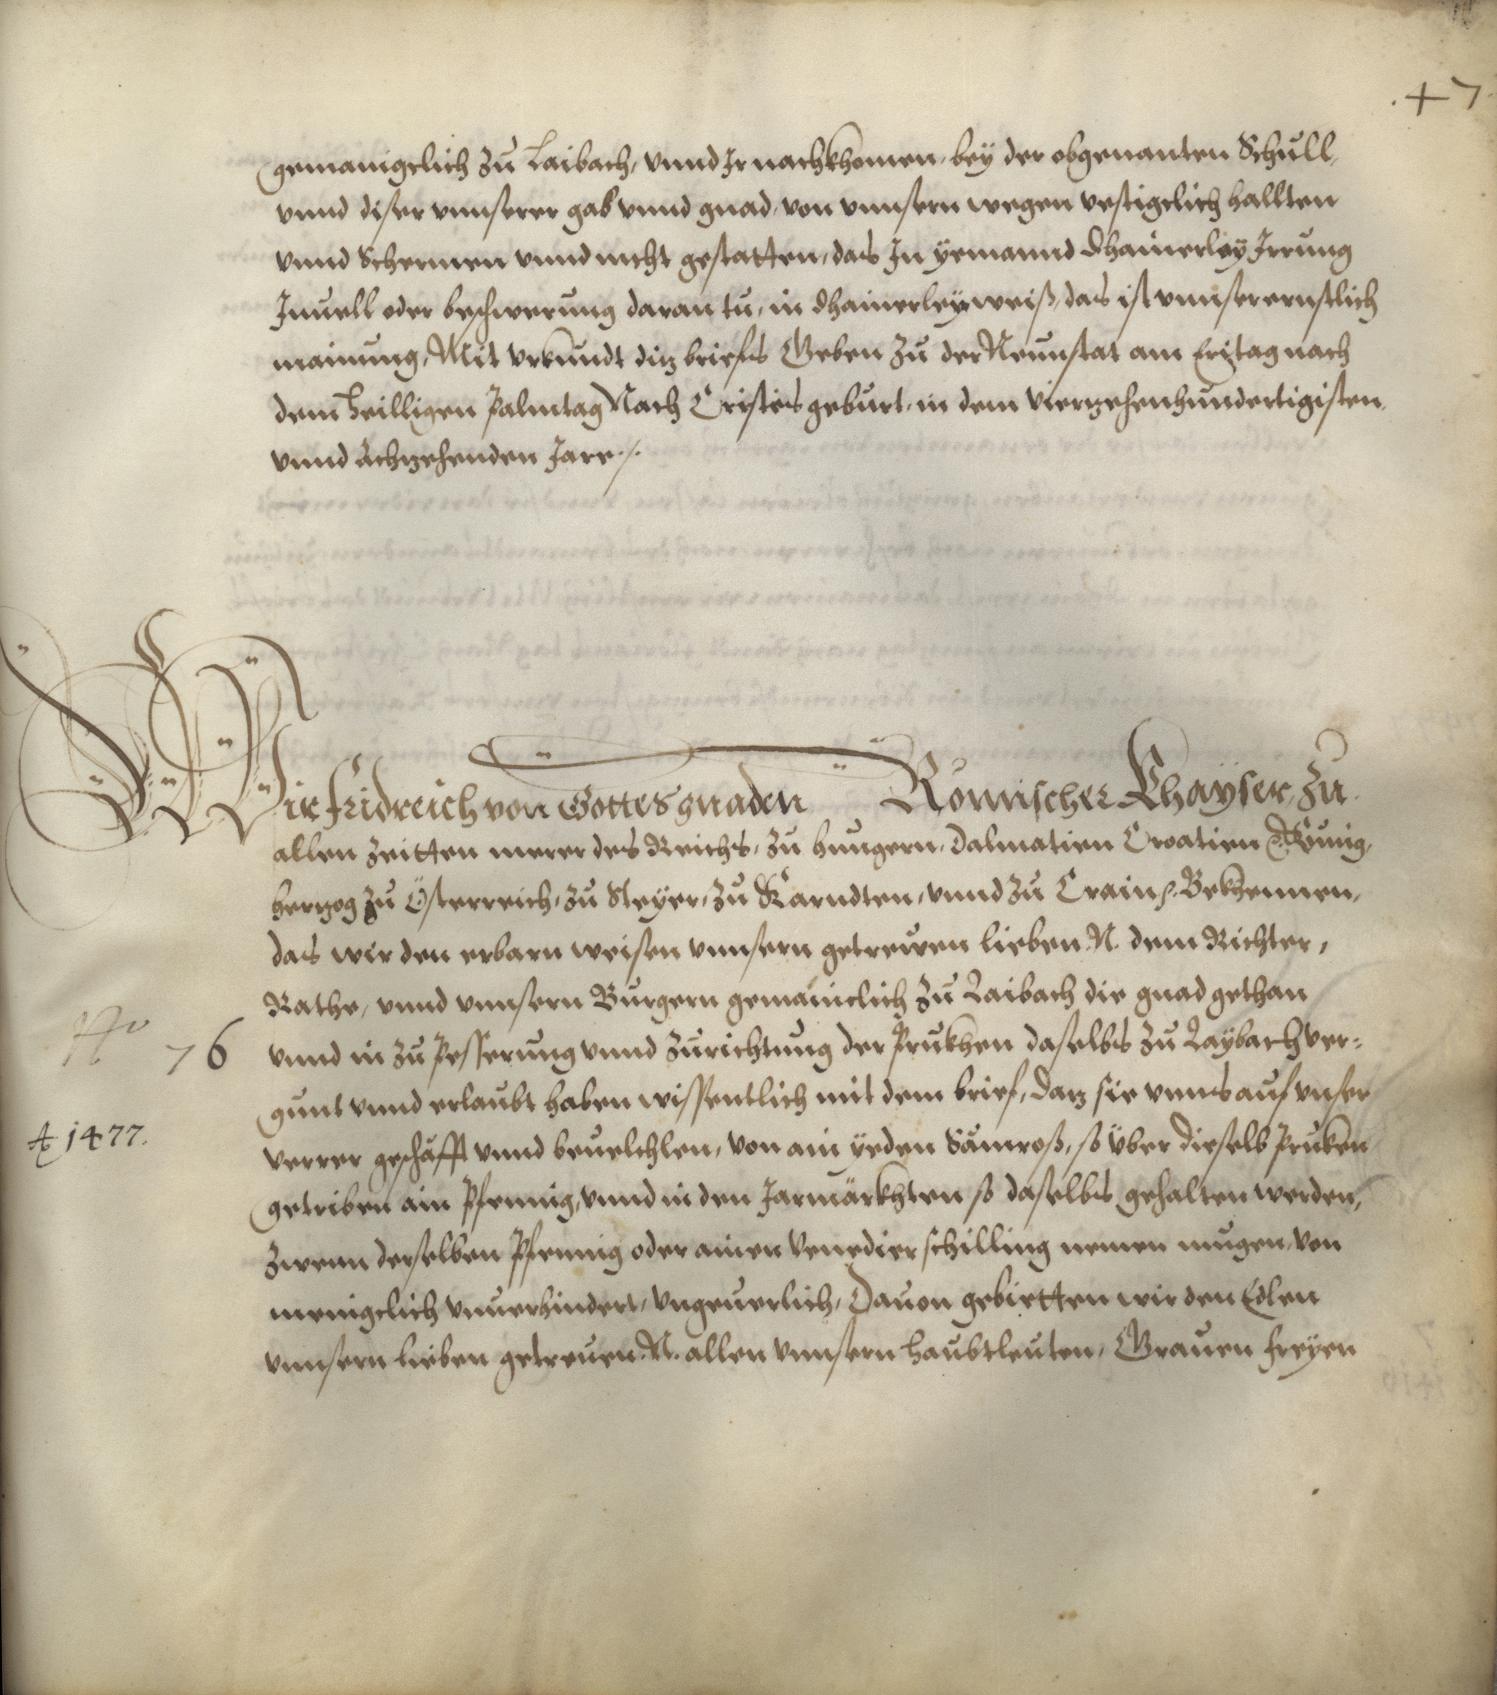 47
gemainigclich zu Laibach, vnnd Ir nachkhomen, bey der obgenanten Schull,
vnnd diser vnnserer gab vnnd gnad, von vnnsern wegen vestigclich hallten
vnnd Schermen vnnd nicht gestatten, das In yemannd dhainerley Irrung
Inuell oder beschwerung daran tu, in dhainerley weiß, das ist vnnser ernstlich
mainung, Mit vrkundt ditz briefs Geben zu der Neunstat am Eritag nach
dem heilligen Palmtag Nach Cristis geburt, in dem Viertzehenhundertigisten
vnnd Achtzehenden Jare ./.
Wir Fridreich von Gottes gnaden Römischer Khayser, zu
allen zeitten merer des Reichs, zu hungern, Dalmatien Croatien Khünig,
hertzog zu Österreich, zu Steyer, zu Karndten, vnnd zu Crain Bekhennen,
das wir den erbarn weisen vnnsern getrewen lieben N. dem Richter,
Rathe, vnnd vnnsern Burgern gemainclich zu Laibach die gnad gethan
No 76
vnnd in zu Pesserung vnnd Zurichtung der Prukhen daselbs zu Laybach ver=
gunt vnnd erlaubt haben wissentlich mit dem brief, Datz sie vnns auf vnser
A 1477.
verrer geschäfft vnnd beuelchlen, von ain yeden Sämroß, so über dieselb Pruken
getriben ain Pfennig, vnnd in den Jarmärkhten so daselbs gehalten werden,
zwenn derselben Pfennig oder ainen Venedier schilling nemen mugen, von
menigclich vnuerhindert, vngeuerlich, Dauon gebietten wir den Edlen
vnnsern lieben getreuen N. allen vnnsern haubtleuten, Grauen freyen